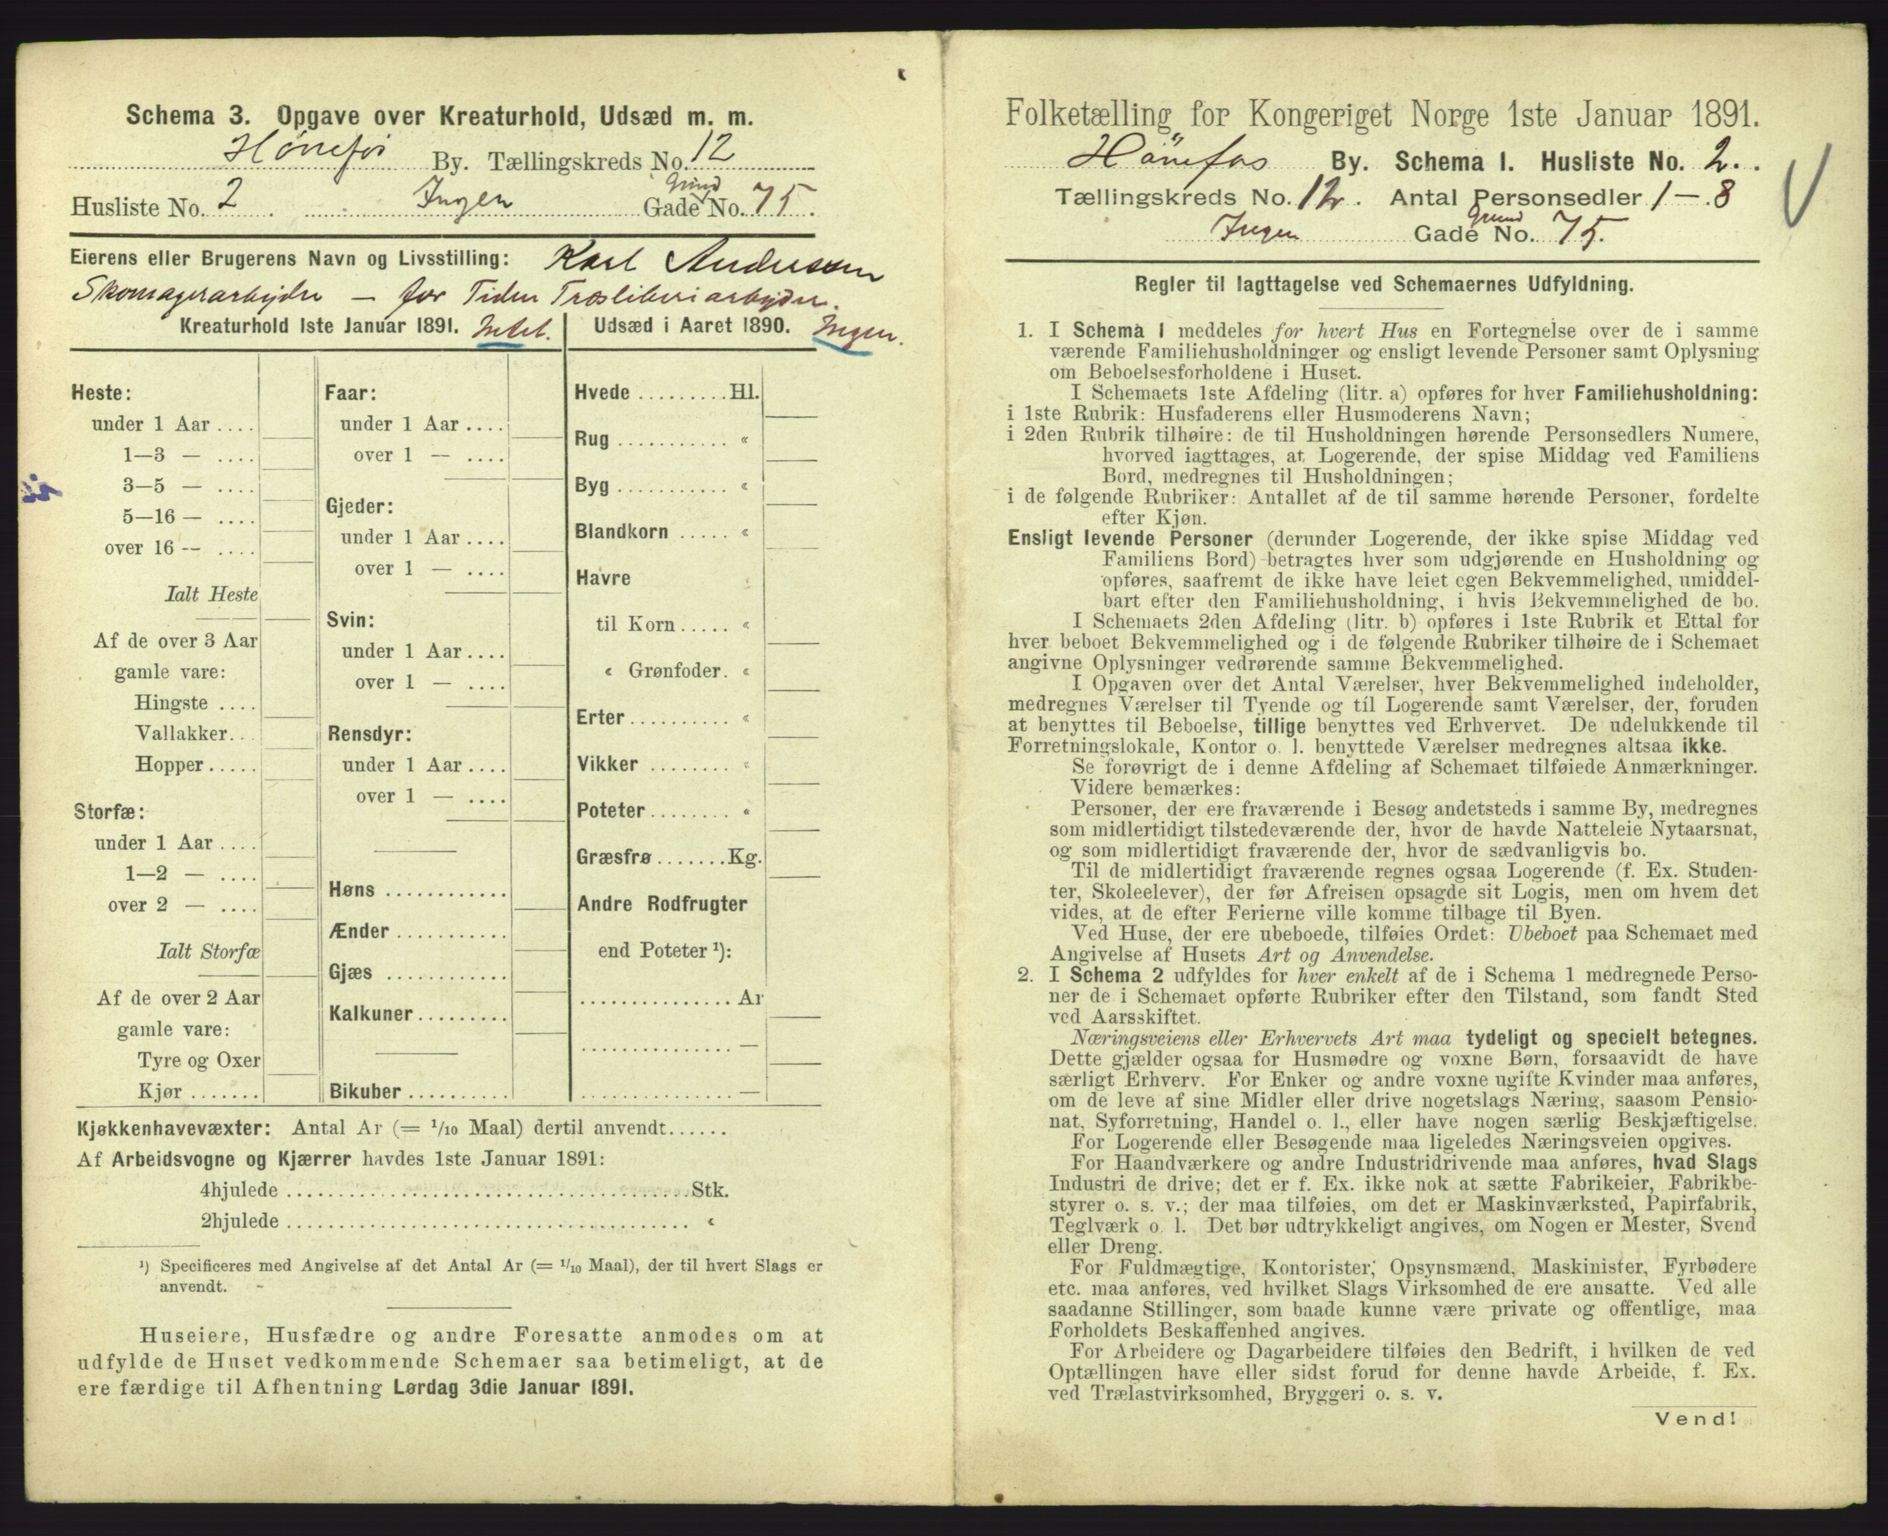 Schema 3. Opgave over Kreaturhold, Udsæd m. m.
Hønefos By. Tællingskreds No. 12
Husliste No. 2 Ingen Grund Gade No. 75.
Eierens eller Brugerens Navn og Livsstilling: Karl Anderssen
Skomagerarbejder — for Tiden Træsliberiarbejder.
Kreaturhold 1ste Januar 1891. Intet.
Heste:
under 1 Aar ....
1—3 — ....
3—5 — ....
5—16 — ....
over 16 — ....
Ialt Heste
Af de over 3 Aar
gamle vare:
Hingste ....
Vallakker...
Hopper.....
Storfæ:
under 1 Aar ....
1—2 — ....
over 2 — ....
Ialt Storfæ
Af de over 2 Aar
gamle vare:
Tyre og Oxer
Kjør .......
Faar:
under 1 Aar ....
over 1 — ....
Gjeder:
under 1 Aar ....
over 1 — ....
Svin:
under 1 Aar ....
over 1 — ....
Rensdyr:
under 1 Aar ....
over 1 — ....
Høns ............
Ænder ...........
Gjæs ............
Kalkuner.........
Bikuber ..........
Udsæd i Aaret 1890. Ingen.
Hvede .........Hl.
Rug ........... «
Byg ........... «
Blandkorn ..... «
Havre
til Korn..... «
« Grønfoder. «
Erter .......... «
Vikker ........ «
Poteter........ «
Græsfrø.......Kg.
Andre Rodfrugter
end Poteter ¹):
............... Ar
............... —
............... —
Kjøkkenhavevæxter: Antal Ar (= 1/10 Maal) dertil anvendt......
Af Arbeidsvogne og Kjærrer havdes 1ste Januar 1891:
4hjulede ........................................Stk.
2hjulede ........................................ «
¹) Specificeres med Angivelse af det Antal Ar (= 1/10 Maal), der til hvert Slags er
anvendt.
Huseiere, Husfædre og andre Foresatte anmodes om at
udfylde de Huset vedkommende Schemaer saa betimeligt, at de
ere færdige til Afhentning Lørdag 3die Januar 1891.
Folketælling for Kongeriget Norge 1ste Januar 1891.
Hönefos By. Schema 1. Husliste No. 2.
Tællingskreds No. 12. Antal Personsedler 1—8
Ingen Grund Gade No. 75.
Regler til Iagttagelse ved Schemaernes Udfyldning.
1. I Schema 1 meddeles for hvert Hus en Fortegnelse over de i samme
værende Familiehusholdninger og ensligt levende Personer samt Oplysning
om Beboelsesforholdene i Huset.
I Schemaets 1ste Afdeling (litr. a) opføres for hver Familiehusholdning:
i 1ste Rubrik: Husfaderens eller Husmoderens Navn;
i 2den Rubrik tilhøire: de til Husholdningen hørende Personsedlers Numere,
hvorved iagttages, at Logerende, der spise Middag ved Familiens
Bord, medregnes til Husholdningen;
i de følgende Rubriker: Antallet af de til samme hørende Personer, fordelte
efter Kjøn.
Ensligt levende Personer (derunder Logerende, der ikke spise Middag ved
Familiens Bord) betragtes hver som udgjørende en Husholdning og
opføres, saafremt de ikke have leiet egen Bekvemmelighed, umiddel-
bart efter den Familiehusholdning, i hvis Bekvemmelighed de bo.
I Schemaets 2den Afdeling (litr. b) opføres i 1ste Rubrik et Ettal for
hver beboet Bekvemmelighed og i de følgende Rubriker tilhøire de i Schemaet
angivne Oplysninger vedrørende samme Bekvemmelighed.
I Opgaven over det Antal Værelser, hver Bekvemmelighed indeholder,
medregnes Værelser til Tyende og til Logerende samt Værelser, der, foruden
at benyttes til Beboelse, tillige benyttes ved Erhvervet. De udelukkende til
Forretningslokale, Kontor o. l. benyttede Værelser medregnes altsaa ikke.
Se forøvrigt de i denne Afdeling af Schemaet tilføiede Anmærkninger.
Videre bemærkes:
Personer, der ere fraværende i Besøg andetsteds i samme By, medregnes
som midlertidigt tilstedeværende der, hvor de havde Natteleie Nytaarsnat,
og som midlertidigt fraværende der, hvor de sædvanligvis bo.
Til de midlertidigt fraværende regnes ogsaa Logerende (f. Ex. Studen-
ter, Skoleelever), der før Afreisen opsagde sit Logis, men om hvem det
vides, at de efter Ferierne ville komme tilbage til Byen.
Ved Huse, der ere ubeboede, tilføies Ordet: Ubeboet paa Schemaet med
Angivelse af Husets Art og Anvendelse.
2. I Schema 2 udfyldes for hver enkelt af de i Schema 1 medregnede Perso-
ner de i Schemaet opførte Rubriker efter den Tilstand, som fandt Sted
ved Aarsskiftet.
Næringsveiens eller Erhvervets Art maa tydeligt og specielt betegnes.
Dette gjælder ogsaa for Husmødre og voxne Børn, forsaavidt de have
særligt Erhverv. For Enker og andre voxne ugifte Kvinder maa anføres,
om de leve af sine Midler eller drive nogetslags Næring, saasom Pensio-
nat, Syforretning, Handel o. l., eller have nogen særlig Beskjæftigelse.
For Logerende eller Besøgende maa ligeledes Næringsveien opgives.
For Haandværkere og andre Industridrivende maa anføres, hvad Slags
Industri de drive; det er f. Ex. ikke nok at sætte Fabrikeier, Fabrikbe-
styrer o. s. v.; der maa tilføies, om det er Maskinværksted, Papirfabrik,
Teglværk o. l. Det bør udtrykkeligt angives, om Nogen er Mester, Svend
eller Dreng.
For Fuldmægtige, Kontorister, Opsynsmænd, Maskinister, Fyrbødere
etc. maa anføres, ved hvilket Slags Virksomhed de ere ansatte. Ved alle
saadanne Stillinger, som baade kunne være private og offentlige, maa
Forholdets Beskaffenhed angives.
For Arbeidere og Dagarbeidere tilføies den Bedrift, i hvilken de ved
Optællingen have eller sidst forud for denne havde Arbeide, f. Ex.
ved Trælastvirksomhed, Bryggeri o. s. v.
Vend!